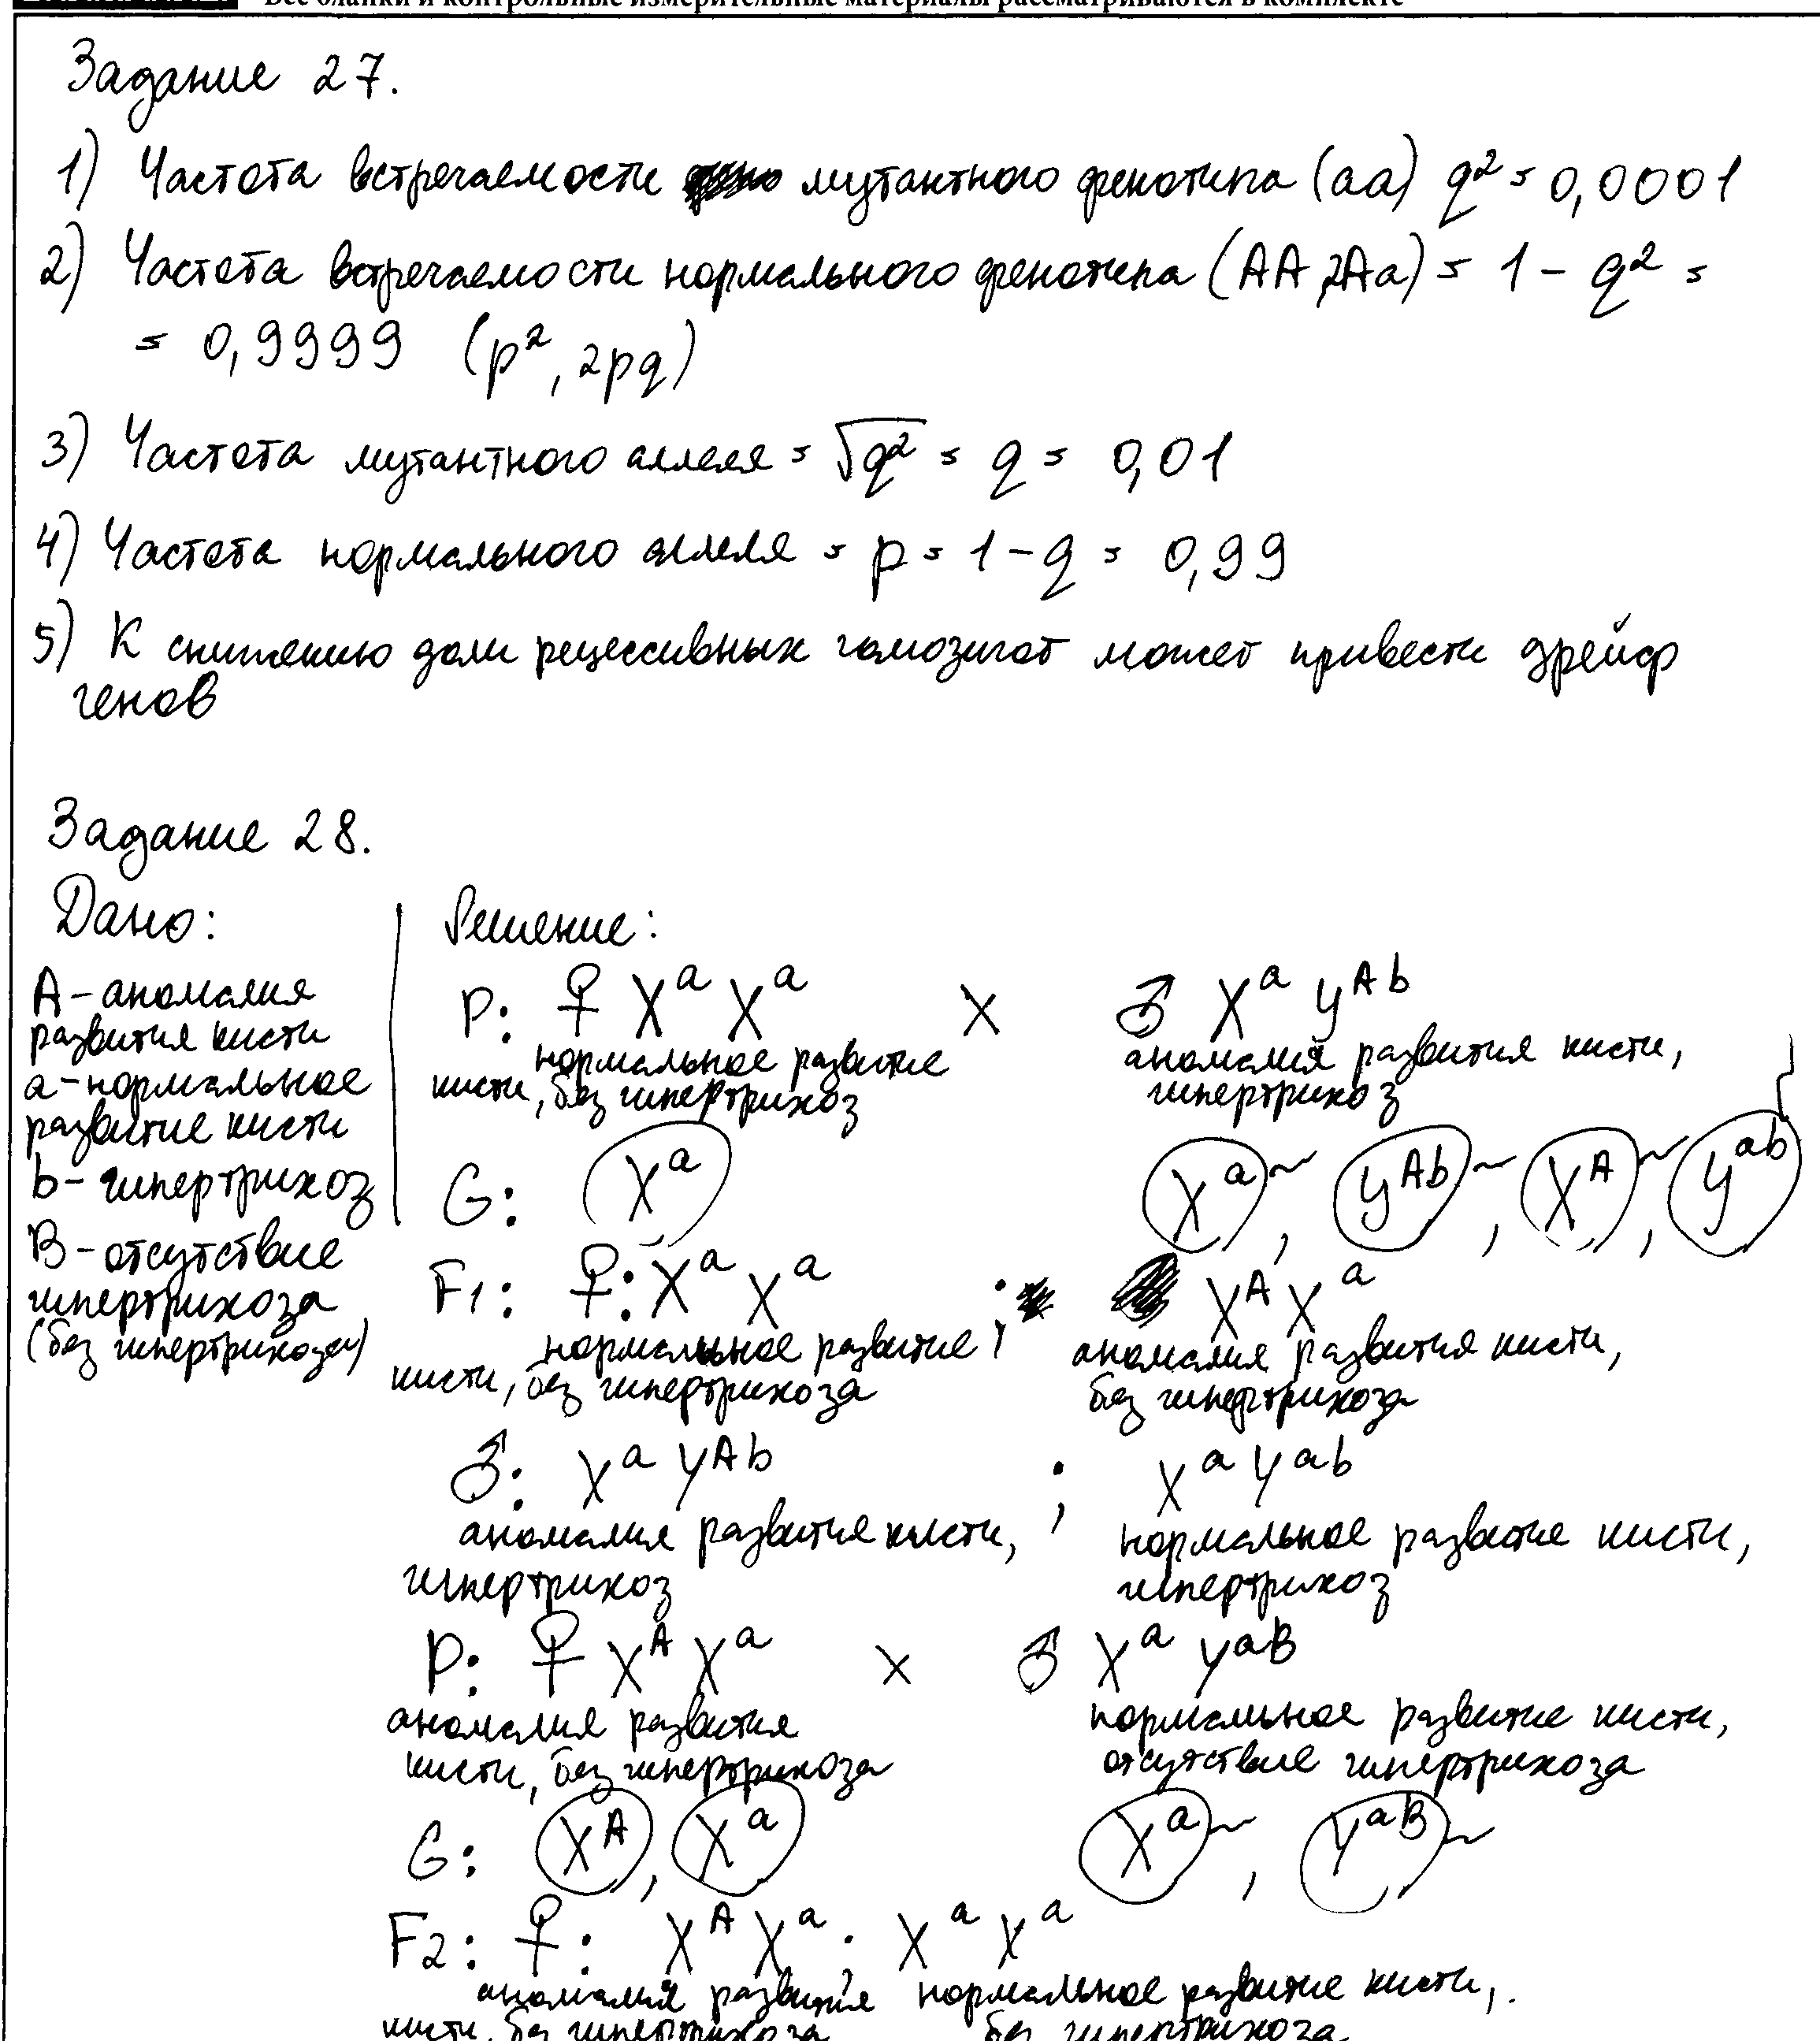 Все бланки и контрольные измерительные материалы рассматриваются в комплекте
Задание 27.
1) Частота встречаемости мутантного фенотипа (aa) q² = 0,0001
2) Частота встречаемости нормального фенотипа (AA, 2Aa) = 1 - q² =
= 0,9999 (p², 2pq)
3) Частота мутантного аллеля = √q² = q = 0,01
4) Частота нормального аллеля = p = 1 - q = 0,99
5) К снижению доли рецессивных гомозигот может привести дрейф
генов
Задание 28.
Дано:
A - аномалия
развития кисти
a - нормальное
развитие кисти
b - гипертрихоз
B - отсутствие
гипертрихоза
(без гипертрихоза)
Решение:
P: ♀ Xᵃ Xᵃ x ♂ Xᵃ Yᴬᵇ
нормальное развитие кисти, без гипертрихоз
аномалия развития кисти, гипертрихоз
G: Xᵃ Xᵃ~, Yᴬᵇ~, Xᴬ~, Yᵃᵇ~
F1: ♀: Xᵃ Xᵃ ; Xᴬ Xᵃ
нормальное развитие кисти, без гипертрихоза ;
аномалия развития кисти, без гипертрихоза
♂: Xᵃ Yᴬᵇ ; Xᵃ Yᵃᵇ
аномалия развития кисти, гипертрихоз
нормальное развитие кисти, гипертрихоз
P: ♀ Xᴬ Xᵃ x ♂ Xᵃ Yᵃᴮ
аномалия развития кисти, без гипертрихоза
нормальное развитие кисти, отсутствие гипертрихоза
G: Xᴬ, Xᵃ Xᵃ~, Yᵃᴮ~
F2: ♀: Xᴬ Xᵃ ; Xᵃ Xᵃ
аномалия развития кисти, без гипертрихоза
нормальное развитие кисти, без гипертрихоза